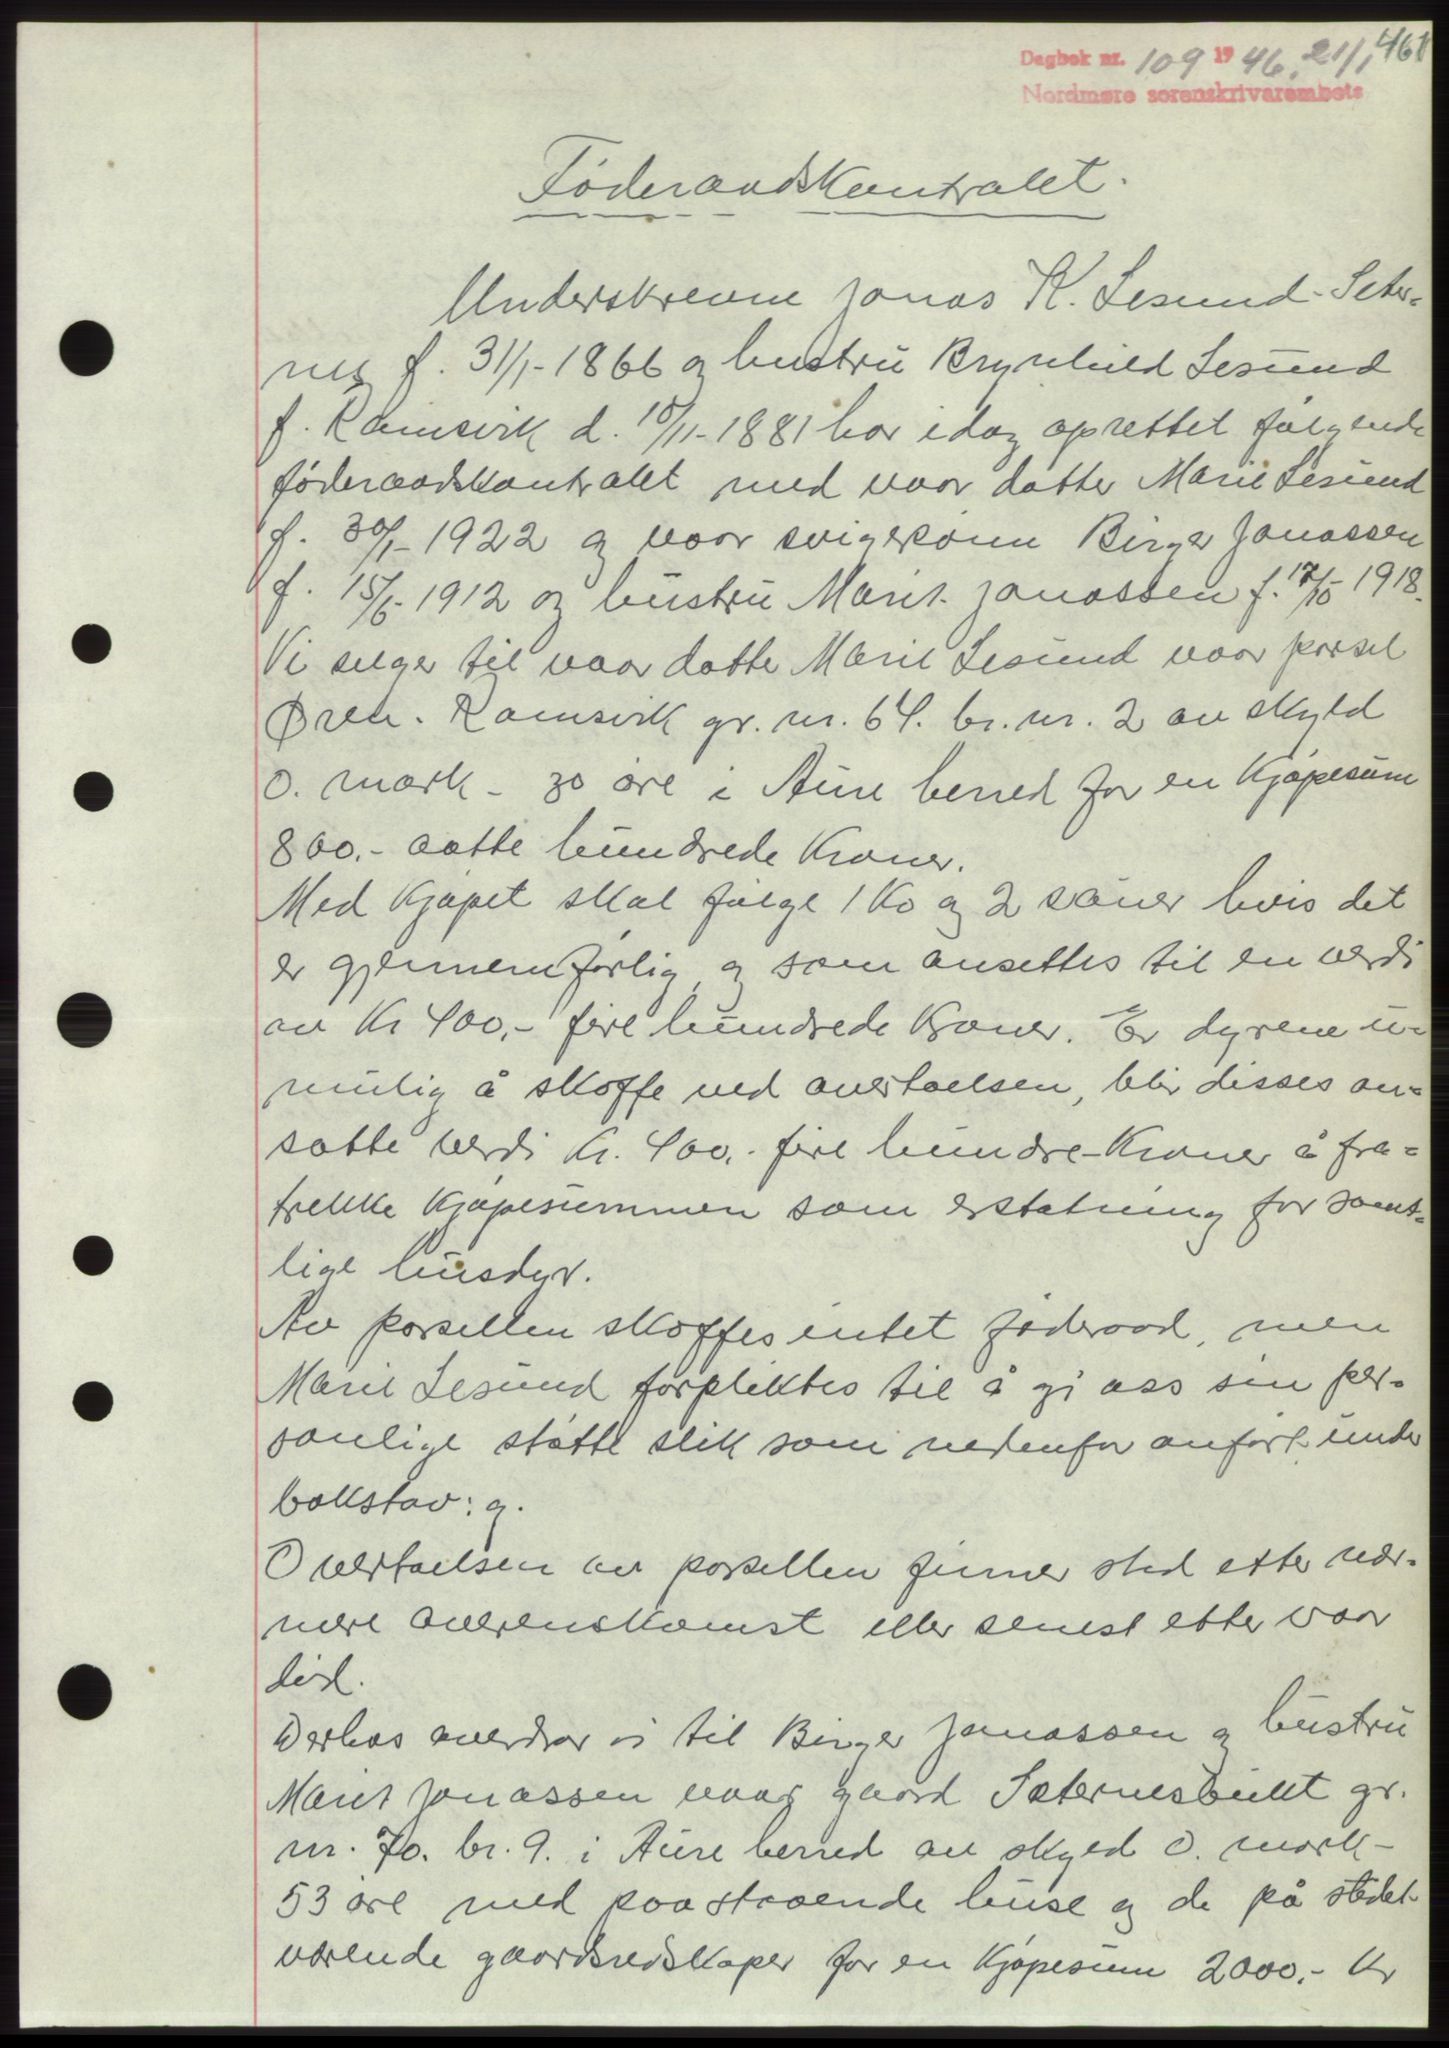 461
Dagbok nr. 109 1946. 21/1
Nordmøre sorenskrivarembete
Føderaadskontrakt.
Underskrevne Jonas K. Lesund-Seter-
nes f. 31/1-1866 og hustru Brynhild Lesund
f. Ramsvik d. 10/11-1881 har idag oprettet følgende
føderaadskontrakt med vaar datter Marie Lesund
f. 30/1-1922 og vaar svigersønn Birger Jonassen
f. 15/6-1912 og hustru Marit Jonassen f. 17/10-1918.
Vi selger til vaar datter Marie Lesund vaar parsel
Øren. Ramsvik gr. nr. 64. br. nr. 2 av skyld
0. mark - 30 øre i Aure herred for en Kjøpesum
800.- aatte hundrede Kroner.
Med Kjøpet skal følge 1 Ko og 2 sauer hvis det
er gjennemførlig, og som ansettes til en verdi
av Kr 400.- fire hundrede Kroner. Er dyrene u-
mulig å skaffe ved overtaelsen, blir disses an-
satte verdi Kr. 400.- fire hundre-Kroner å fra-
trekke Kjøpesummen som erstatning for samt-
lige husdyr.
Av parsellen skaffes intet føderaad, men
Marie Lesund forpliktes til å gi oss sin per-
sonlige støtte slik som nedenfor anført under
bokstav: g.
Overtaelsen av parsellen finner sted etter nær-
mere overenskomst eller senest etter vaar
død.
Derhos overdrar vi til Birger Jonassen og hustru
Marit Jonassen vaar gaard Sæternesbukt gr.
nr. 70. br. 9. i Aure herred av skyld 0. mark-
53 øre med paastaaende huse og de på stedet
værende gaardsredskaper for en Kjøpesum 2000.- Kr